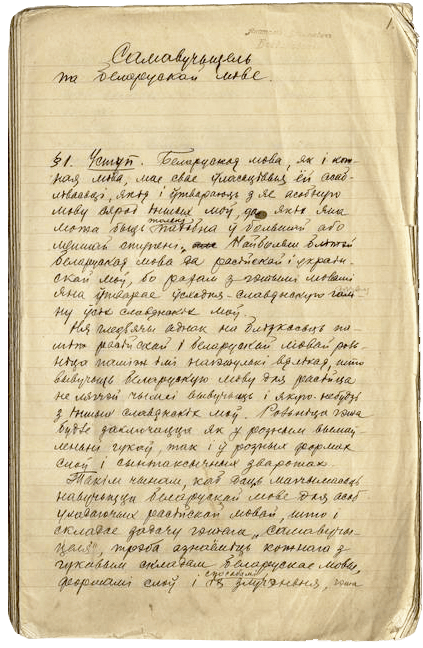 1.
Самавучыцель
па беларускай мове.
§1. Уступ. Беларуская мова, як і кож-
ная мова, мае свае ўласцівыя ёй асаб-
лівасці, якія і ўтвараюць з яе асобную
мову сярод іншых моў, да якіх яна
можа быць толькі падобна ў большай або
меншай ступені. Найбольш блізкай
беларуская мова да расійскай і украін-
скай моў, бо разам з гэтымі мовамі
яна ўтварае усходня-славянскую галі-
ну ўсіх славянскіх моў.
Ня гледзячы аднак на блізкасьць па-
між расійскай і беларускай мовай роз-
ніца паміж імі настолькі вялікая, што
вывучыць беларускую мову для расійца
не лягчэй чымсі вывучыць і якую-небудзь
з іншых славянскіх моў. Розьніца гэта
будзе заключацца як у розным вымаў-
леньні гукаў, так і ў розных формах
слоў і сынтаксічных зваротах.
Такім чынам, каб даць магчымасць
навучыцца беларускай мове для асоб
уладаючых расійскай мовай, што і
складае задачу гэтага „Самавучы-
целя“, трэба азнаёміць кожнага з
гукавым складам беларускае мовы,
формамі слоў і спосабамі іх злучэньня, гэта